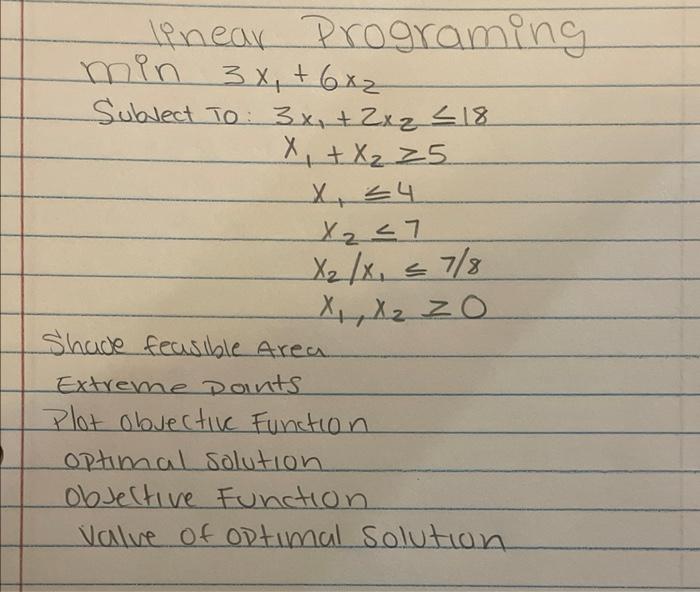 linear Programing
min 3x₁ + 6x₂
Subject To: 3x₁ + 2x₂ ≤ 18
x₁ + x₂ ≥ 5
x₁ ≤ 4
x₂ ≤ 7
x₂/x₁ ≤ 7/8
x₁, x₂ ≥ 0
Shade feasible Area
Extreme Points
Plot Objective Function
Optimal Solution
Objective Function
Value of Optimal Solution